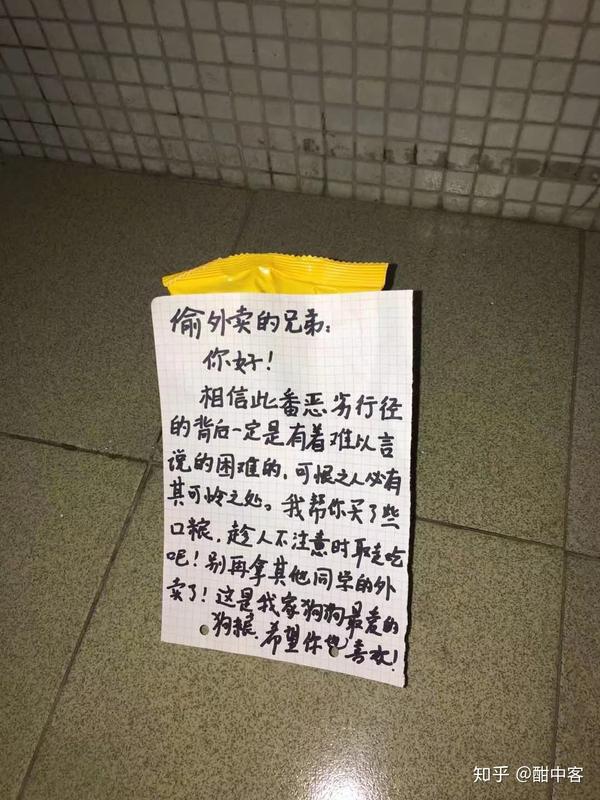 偷外卖的兄弟:
你好!
相信此番恶劣行径
的背后一定是有着难以言
说的困难的,可恨之人必有
其可怜之处。我帮你买了些
口粮,趁人不注意时取走吃
吧!别再拿其他同学的外
卖了!这是我家狗狗最爱的
狗粮,希望你也喜欢!
知乎 @酣中客